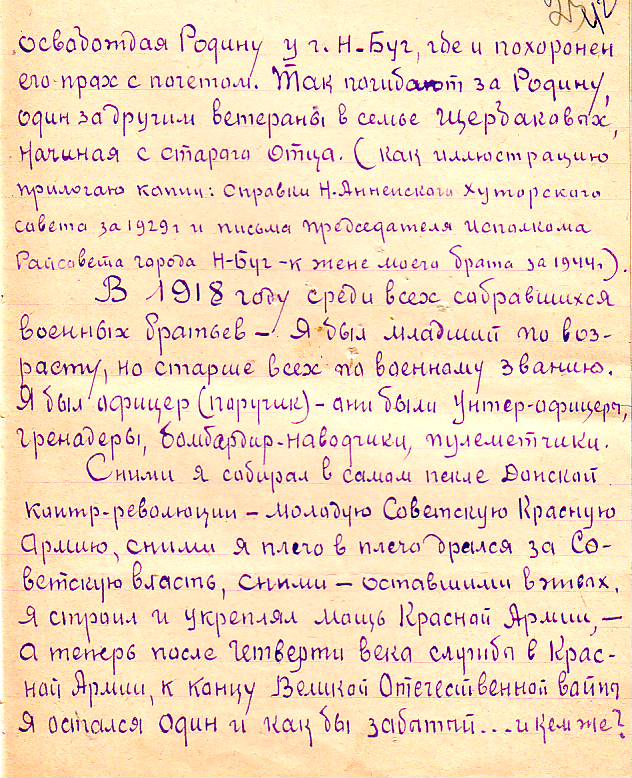 освобождая Родину у г. Н-Буг, где и похоронен
его прах с почетом. Так погибают за Родину,
один за другим ветераны в семье Щербаковых,
начиная с старого отца. (как иллюстрацию
прилогаю копии: справки Н-Анненского хуторского
совета за 1929 г и письма председателя исполкома
Райсовета города Н-Буг-к жене моего брата за 1944 г).
В 1918 году среди всех собравшихся
военных братьев – Я был младший по воз-
расту, но старше всех по военному званию.
Я был офицер (поручик) – они были унтер-офицеры,
гренадеры, бомбардир-наводчики, пулеметчики.
Сними я собирал в самом пекле Донской
контр-революции – молодую Советскую Красную
Армию, сними я плечо в плечо дрался за Со-
ветскую власть, сними – оставшими в живых,
Я строил и укреплял мощь Красной Армии, –
а теперь после четверти века службы в Крас-
ной Армии, к концу Великой Отечественной войны
Я остался один и как бы забытый... и кем же?